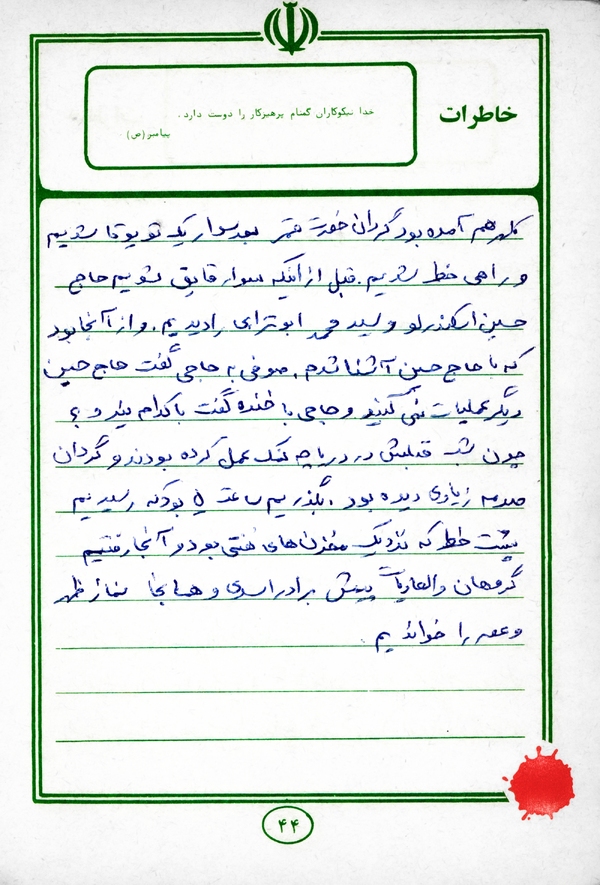 خاطرات
خدا نیکوکاران گمنام پرهیزکار را دوست دارد.
پیامبر (ص)
هم آمده بود گردان حضرت بعد سوار یک تویوتا شدیم
و راهی خط شدیم. قبل از آنکه سوار قایق شویم حاج
حسین اسکندرلو و سید محمد ابوترابی را دیدیم. و از آنجا بود
که با حاج حسین آشنا شدم. صوفی به حاجی گفت حاج حسین
دیگر عملیات نمی کنید و حاجی با خنده گفت با کدام نیرو؟
چون شب قبلش در دریاچه نمک عمل کرده بودند و گردان
صدمه زیادی دیده بود. بگذریم ساعت ۵ بود که رسیدیم
پشت خط که نزدیک مخزن های نفتی بود و آنجا رفتیم
گروهان والعادیات پیش برادر اسدی و همانجا نماز ظهر
و عصر را خواندیم
۴۴